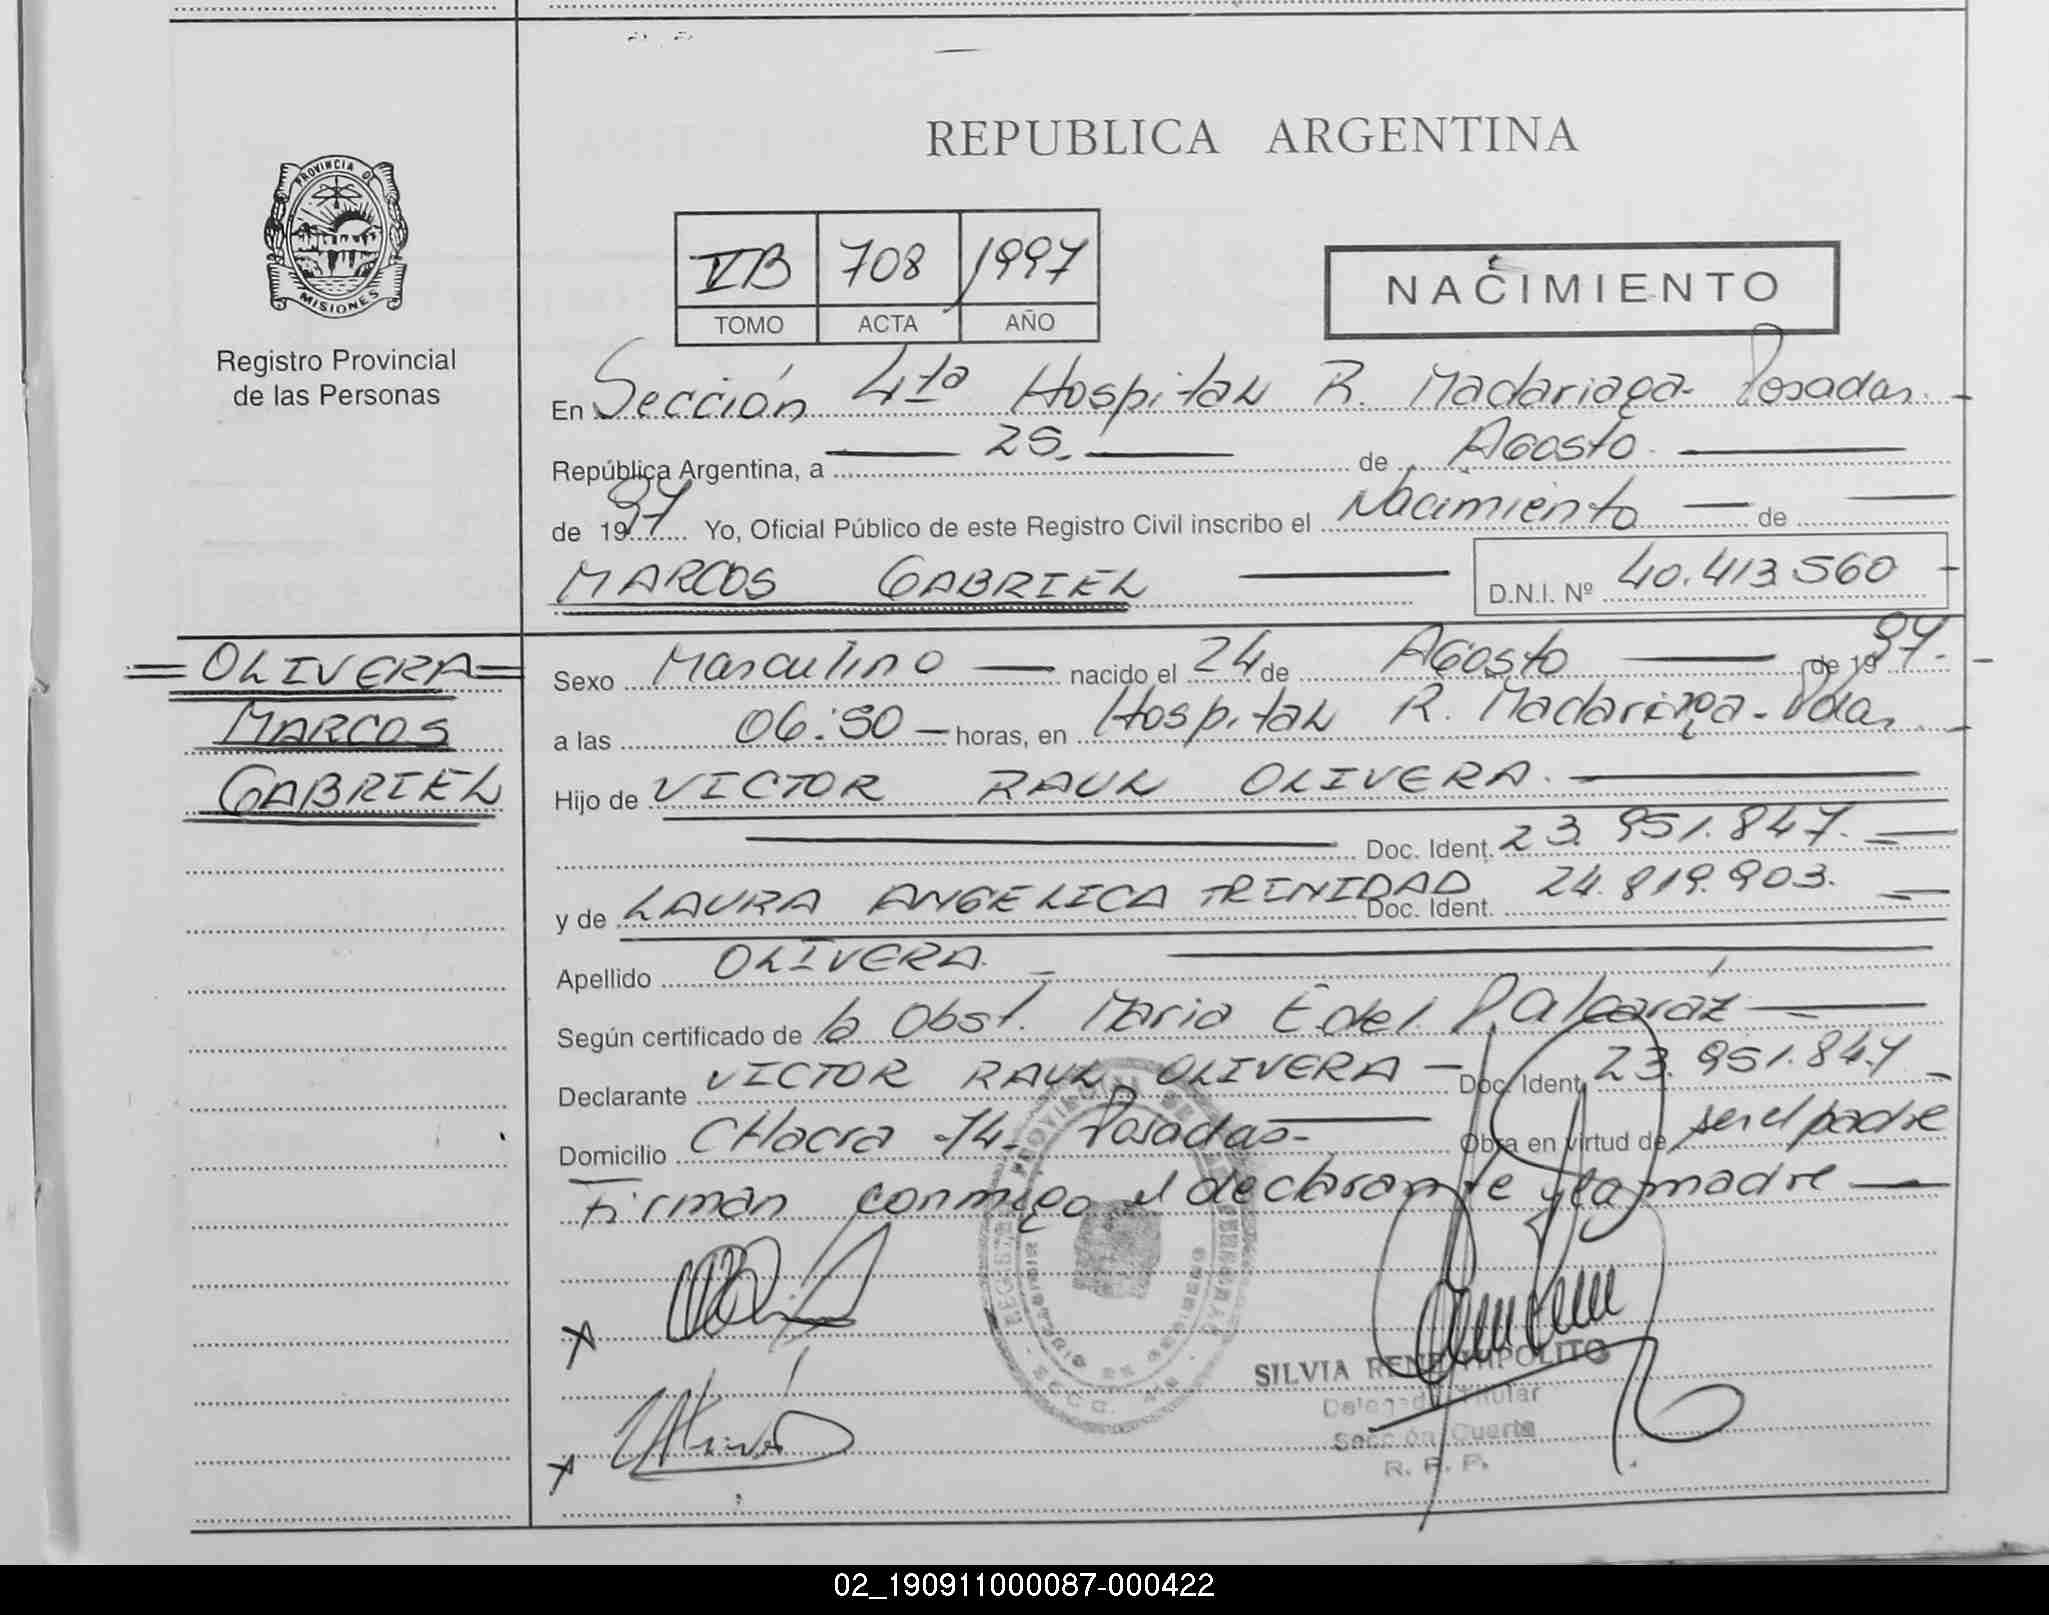 REPUBLICA ARGENTINA
PROVINCIA DE
MISIONES
Registro Provincial
de las Personas
VB 708 1997
TOMO ACTA AÑO
NACIMIENTO
En Sección 4ta Hospital R. Madariaga - Posadas. -
República Argentina, a — 25. — de Agosto. —
de 1997 Yo, Oficial Público de este Registro Civil inscribo el Nacimiento — de —
MARCOS GABRIEL — D.N.I. Nº 40.413.560 -
= OLIVERA =
MARCOS
GABRIEL
Sexo Masculino — nacido el 24 de Agosto — de 1997. -
a las 06:50 — horas, en Hospital R. Madariaga - Pdas. -
Hijo de VICTOR RAUL OLIVERA. —
— Doc. Ident. 23.951.847. =
y de LAURA ANGELICA TRINIDAD Doc. Ident. 24.819.903. =
Apellido OLIVERA. —
Según certificado de la Obst. Maria Edel. D'Alcaráz —
Declarante VICTOR RAUL OLIVERA — Doc. Ident. 23.951.847 -
Domicilio CHacra -74- Posadas - Obra en virtud de ser el padre
Firman conmigo el declarante y la madre —
X
X
SILVIA RENE HIPOLITO
Delegada Titular
Sección Cuarta
R. P. P.
02_190911000087-000422